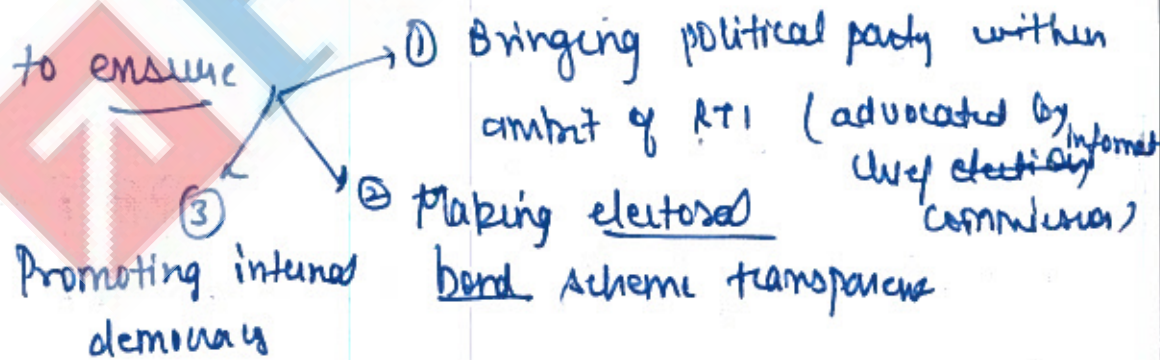 to ensure
① Bringing political party within
ambit of RTI (advocated by
chief election informat
commission)
② Making electoral
bond scheme transparent
③
Promoting internal
democracy